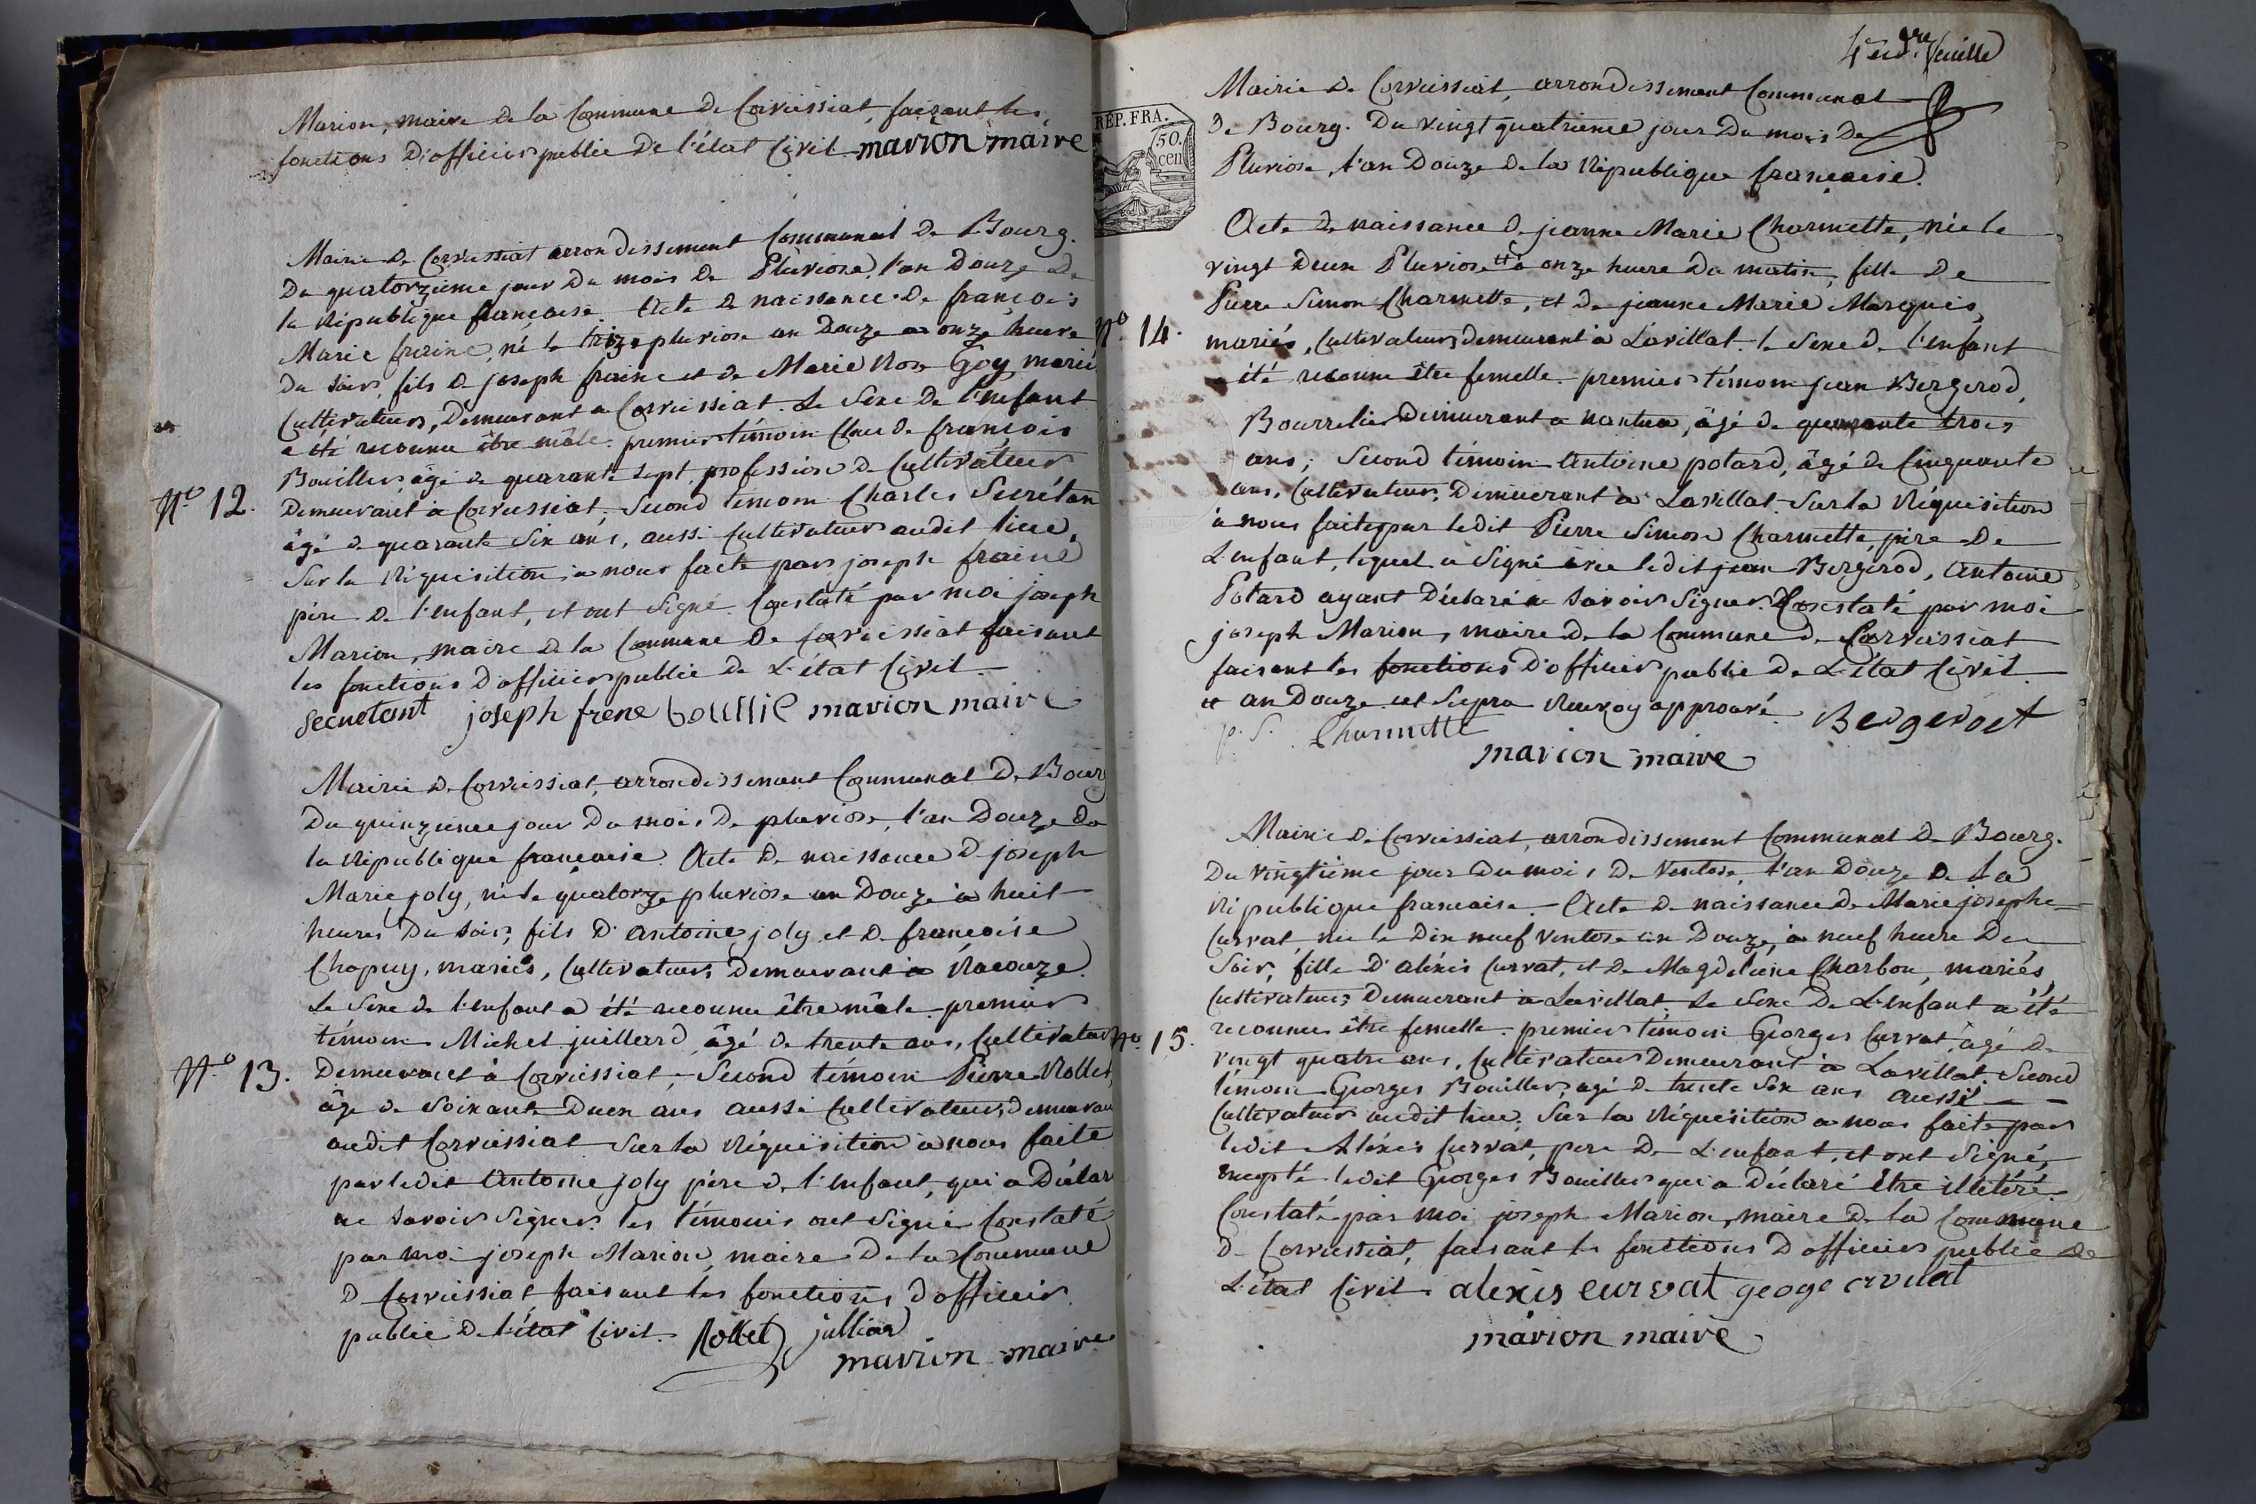 Marion, maire de la Commune de Corveissiat, faisant les
fonctions d'officier public de l'état Civil. marion maire
Mairie de Corveissiat arrondissement Communal de Bourg.
Du quatorzieme jour du mois de Pluviose, l'an Douze de
la République française. Acte de naissance de françois
Marie fraine, né le treize pluviose an Douze a onze heure
du soir, fils de joseph fraine et de Marie Rose Goy mariés
Cultivateurs, Demeurant a Corveissiat. Le Sexe de l'enfant
a été reconnu être mâle. premier témoin Claude françois
Bouillier, âgé de quarante sept, profession de Cultivateur
N.o 12.
Demeurant à Corveissiat, Second témoin Charles Secrétan
âgé de quarante Six ans, aussi Cultivateur audit lieu.
Sur la Réquisition a nous faite par joseph fraine
père de l'enfant, et ont Signé. Constaté par moi joseph
Marion, maire de la Commune de Corveissiat faisant
les fonctions d'officier public de L'état Civil.
secretant joseph frene boullie marion maire
Mairie de Corveissiat, arrondissement Communal de Bourg
Du quinzieme jour du mois de pluviose, l'an Douze de
la République française. Acte de naissance de joseph
Marie joly, né le quatorze pluviose an Douze à huit
heures du soir, fils d'antoine joly et de françoise
Chapuy, mariés, Cultivateurs demeurant à Racouze.
Le Sexe de l'enfant a été reconnu être mâle. premier
témoin Michel juillard, âgé de trente ans, Cultivateur
N.o 13.
Demeurant à Corveissiat, Second témoin Pierre Rollet,
âge de Soixante Deux ans aussi Cultivateur, demeurant
audit Corveissiat Sur la Réquisition à nous faite
par ledit Antoine joly père de l'Enfant, qui a Déclaré
ne savoir signer. les témoins ont Signé Constaté
par moi joseph Marion, maire de la Commune
de Corveissiat faisant les fonctions d'officier
public de l'état Civil. Rollet julliar
marion maire
4e et dre feuille
REP. FRA.
50.
cen
Mairie de Corveissiat, arrondissement Communal
de Bourg. Du vingt quatrieme jour du mois de
Pluviose, l'an Douze de la République française.
Acte de naissance de jeanne Marie Charmette, née le
vingt deux Pluviose # à onze heure du matin, fille de
Pierre Simon Charmette, et de jeanne Marie Marquis,
N.o 14.
mariés, Cultivateurs, demeurant à Lavillat. le Sexe de l'enfant
a été reconnu être femelle. premier témoin jean Bergerod,
Bourrelier demeurant a nantua, âgé de quarante trois
ans; Second témoin antoine potard, âgé de Cinquante
ans, Cultivateur, Demeurant à Lavillat. Sur la Réquisition
à nous faite par ledit Pierre Simon Charmette, père de
L'enfant, lequel a Signé avec ledit jean Bergerod, Antoine
Potard ayant Déclaré ne savoir Signer. Constaté par moi
joseph Marion, maire de la Commune de Corveissiat
faisant les fonctions d'officier public de L'état Civil.
# an Douze. ut Supra Renvoy approuvé. Bergeroet
p. S. Charmette
marion maire
Mairie de Corveissiat, arrondissement Communal de Bourg.
Du vingtième jour du mois de Ventose, l'an Douze de la
République francaise. Acte de naissance de Marie josephe
Curvat née le Dix neuf ventose an Douze, à neuf heure Du
Soir, fille d'aléxis Curvat, et de Magdeleine Charbon, mariés,
Cultivateurs Demeurant à Lavillat, Le Sexe de L'Enfant a été
N.o 15.
reconnu être femelle. premier témoin Georges Curvat, âgé de
vingt quatre ans, Cultivateur Demeurant à Lavillat. Second
témoin Georges Bouillier, agé de trente Six ans aussi
Cultivateur audit lieu. Sur la Réquisition a nous faite par
ledit Aléxis Curvat, pere de L'enfant, et ont Signé,
excepté ledit Georges Bouillier qui a Déclaré être illétéré.
Constaté par moi joseph Marion, maire de la Commune
de Corveissiat, faisant les fonctions d'officier public de
L'état Civil. alexis curvat geoge crvuat
marion maire